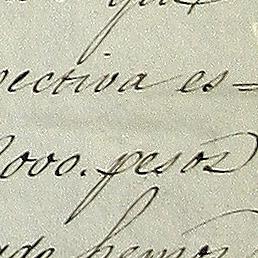 que
pectiva es=
000. pesos
ado hemos